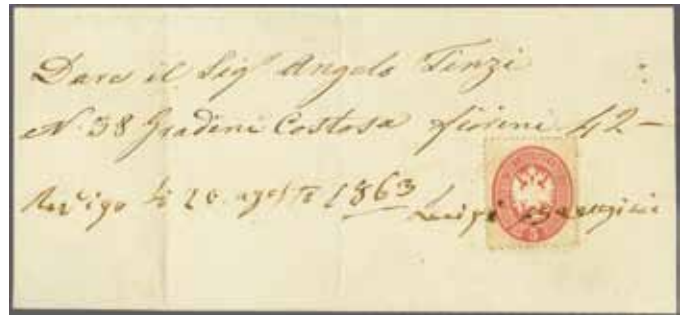 Dare il Sigr Angelo Tinzi
N. 38 Gradini Costosa fiorini 42 –
Rovigo li 20 agosto 1863 Luigi
5